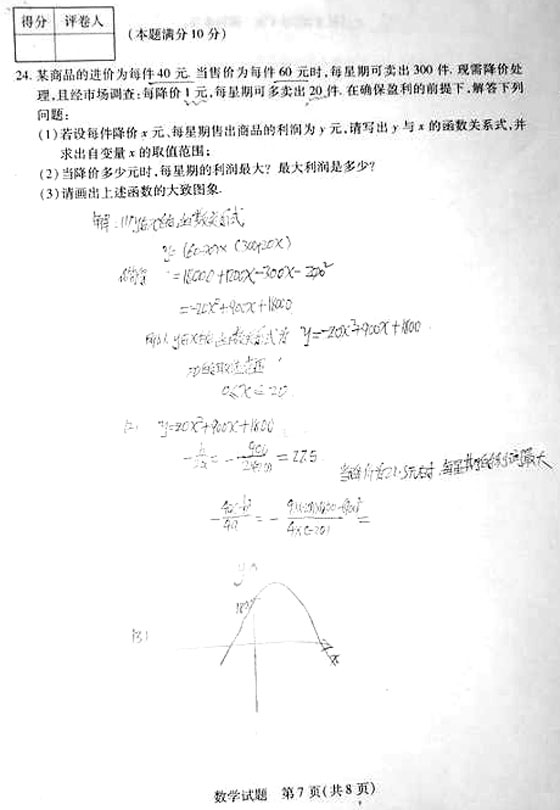 得分 评卷人
(本题满分10分)
24. 某商品的进价为每件40元. 当售价为每件60元时,每星期可卖出300件. 现需降价处
理,且经市场调查:每降价1元,每星期可多卖出20件. 在确保盈利的前提下,解答下列
问题:
(1)若设每件降价x元、每星期售出商品的利润为y元,请写出y与x的函数关系式,并
求出自变量x的取值范围;
(2)当降价多少元时,每星期的利润最大?最大利润是多少?
(3)请画出上述函数的大致图象.
解:(1) y与x的函数关系式
y=(60-x)×(300+20x)
=18000+1200x-300x-20x²
=-20x²+900x+18000
所以y与x的函数关系式为 y=-20x²+900x+1800
的取值范围
0≤x≤20
(2) y=20x²+900x+1800
= 27.5
最大
y
(3)
x
数学试题 第7页(共8页)